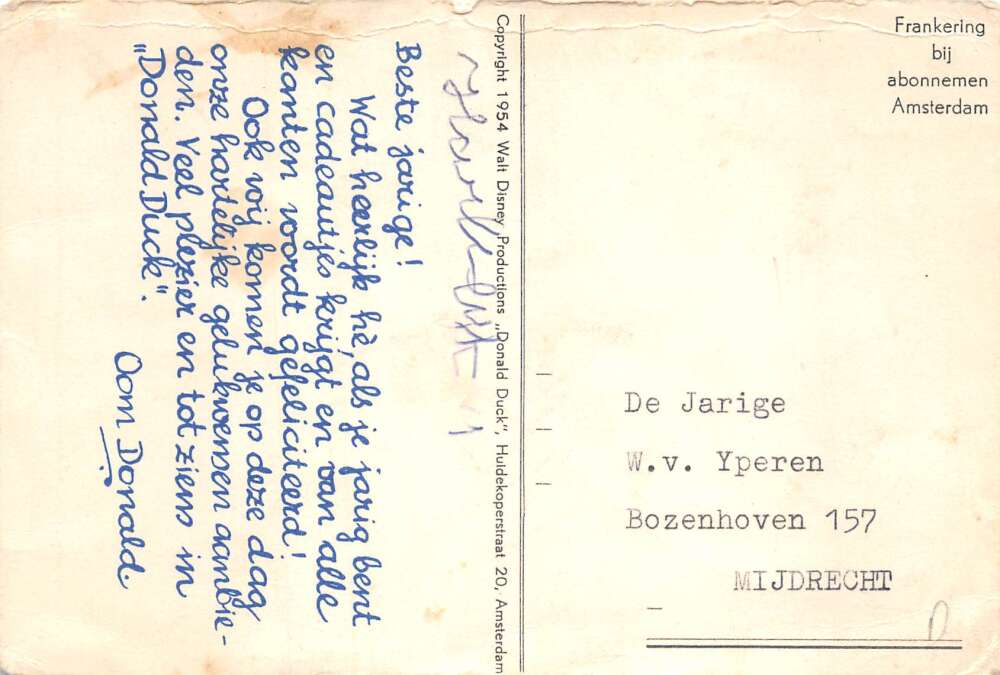 Beste jarige!
Wat heerlijk hè, als je jarig bent
en cadeautjes krijgt en van alle
kanten wordt gefeliciteerd!
Ook wij komen je op deze dag
onze hartelijke gelukwensen aanbie-
den. Veel plezier en tot ziens in
"Donald Duck".
Oom Donald.
Copyright 1954 Walt Disney Productions „Donald Duck", Huidekoperstraat 20, Amsterdam
Frankering
bij
abonnemen
Amsterdam
De Jarige
W.v. Yperen
Bozenhoven 157
MIJDRECHT